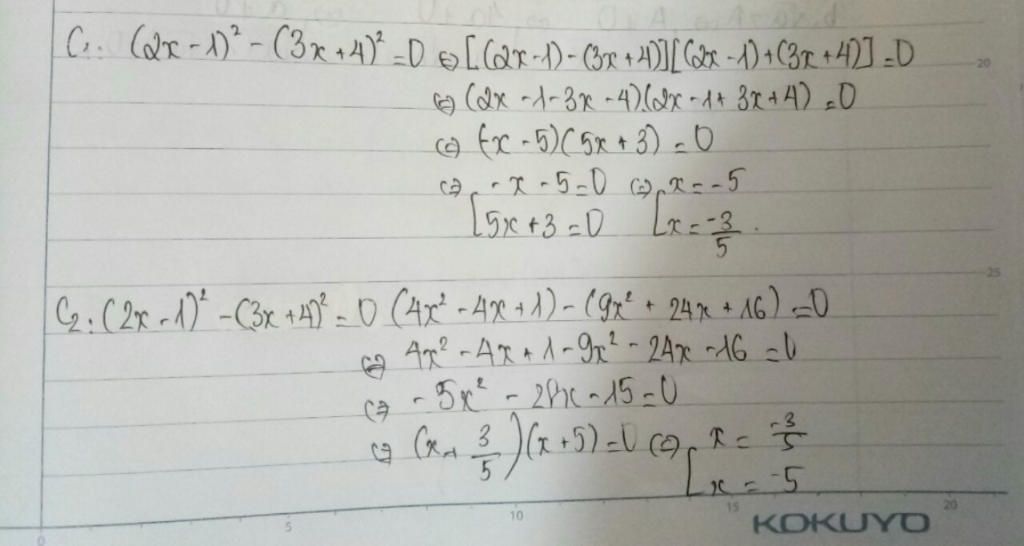 C₁: (2x-1)² - (3x+4)² = 0 ⇔ [(2x-1)-(3x+4)][(2x-1)+(3x+4)] = 0
20
⇔ (2x-1-3x-4)(2x-1+3x+4) = 0
⇔ (-x-5)(5x+3) = 0
⇔ [-x-5=0 ⇔ [x=-5
5x+3=0 x=-3/5.
25
C₂: (2x-1)² - (3x+4)² = 0 (4x²-4x+1) - (9x²+24x+16) = 0
⇔ 4x²-4x+1-9x²-24x-16 = 0
⇔ -5x²-28x-15=0
⇔ (x+3/5)(x+5)=0 ⇔ [x=-3/5
x=-5
0 5 10 15 20
KOKUYO